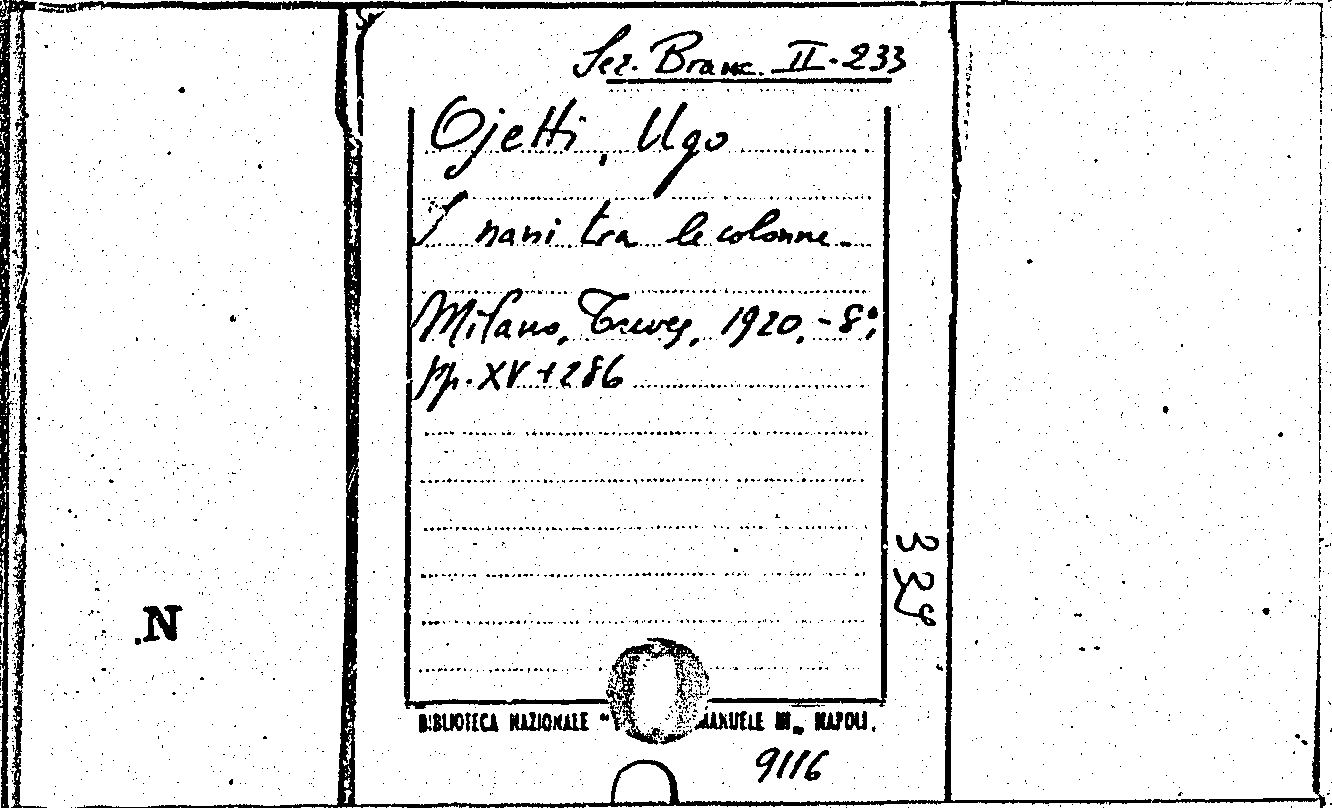 Sez. Branc. II. 233
Ojetti, Ugo
I nani tra le colonne.
Milano, Treves, 1920. - 8°;
pp. XV + 286
BIBLIOTECA NAZIONALE " MANUELE III„ NAPOLI.
9116
N.